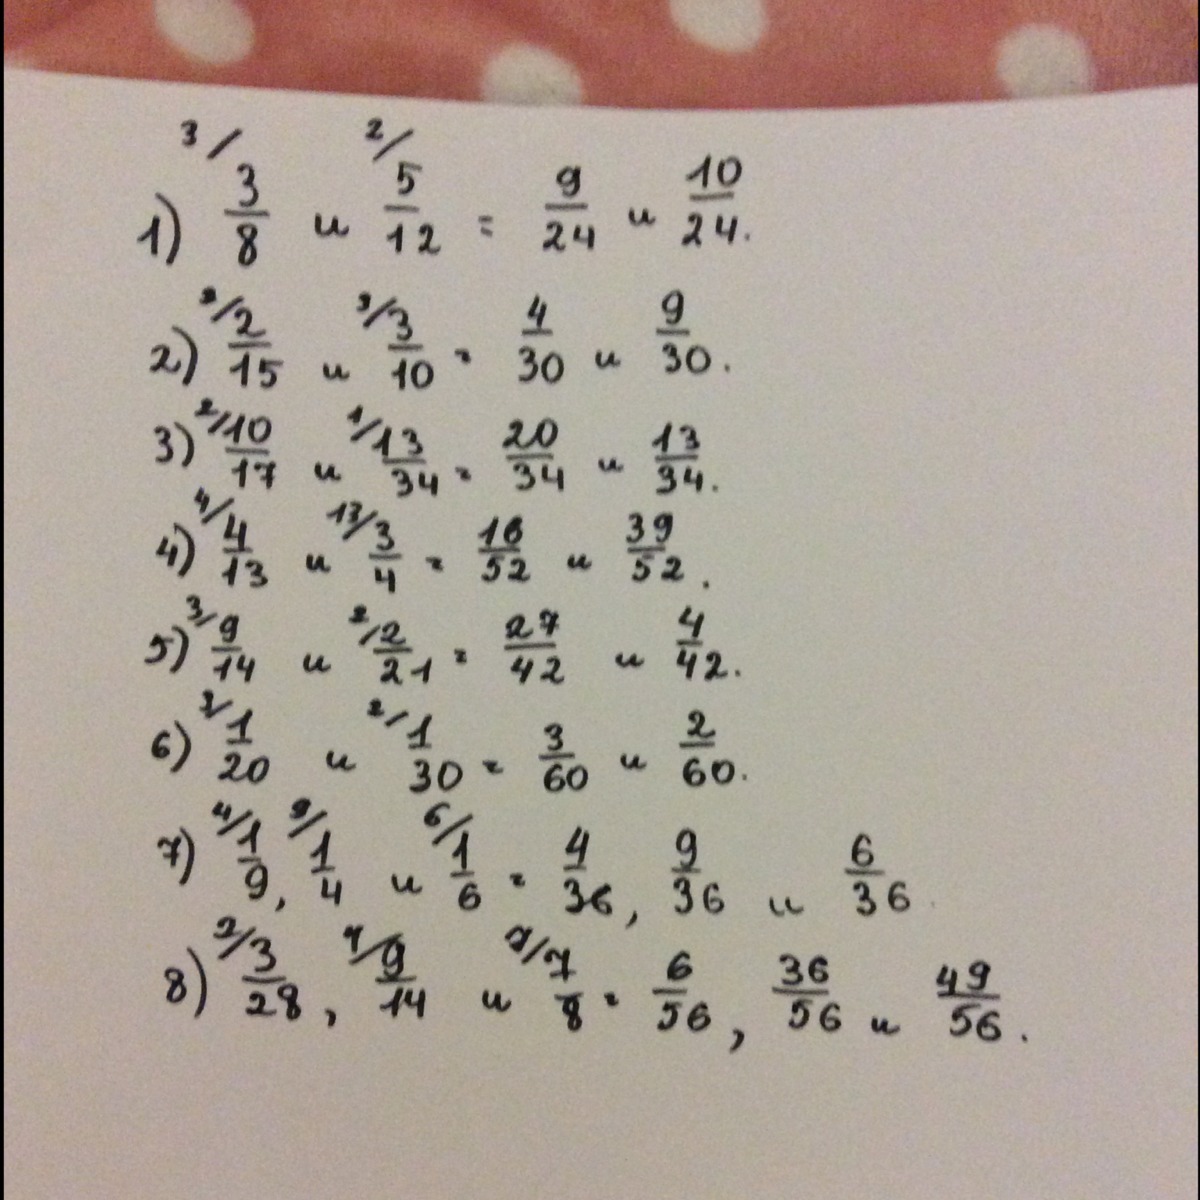 1) ³/ 3/8 и ²/ 5/12 = 9/24 и 10/24.
2) ²/ 2/15 и ³/ 3/10 = 4/30 и 9/30.
3) ²/ 10/17 и ¹/ 13/34 = 20/34 и 13/34.
4) ⁴/ 4/13 и ¹³/ 3/4 = 16/52 и 39/52.
5) ³/ 9/14 и ²/ 2/21 = 27/42 и 4/42.
6) ³/ 1/20 и ²/ 1/30 = 3/60 и 2/60.
7) ⁴/ 1/9, ⁹/ 1/4 и ⁶/ 1/6 = 4/36, 9/36 и 6/36.
8) ²/ 3/28, ⁴/ 9/14 и ⁷/ 7/8 = 6/56, 36/56 и 49/56.